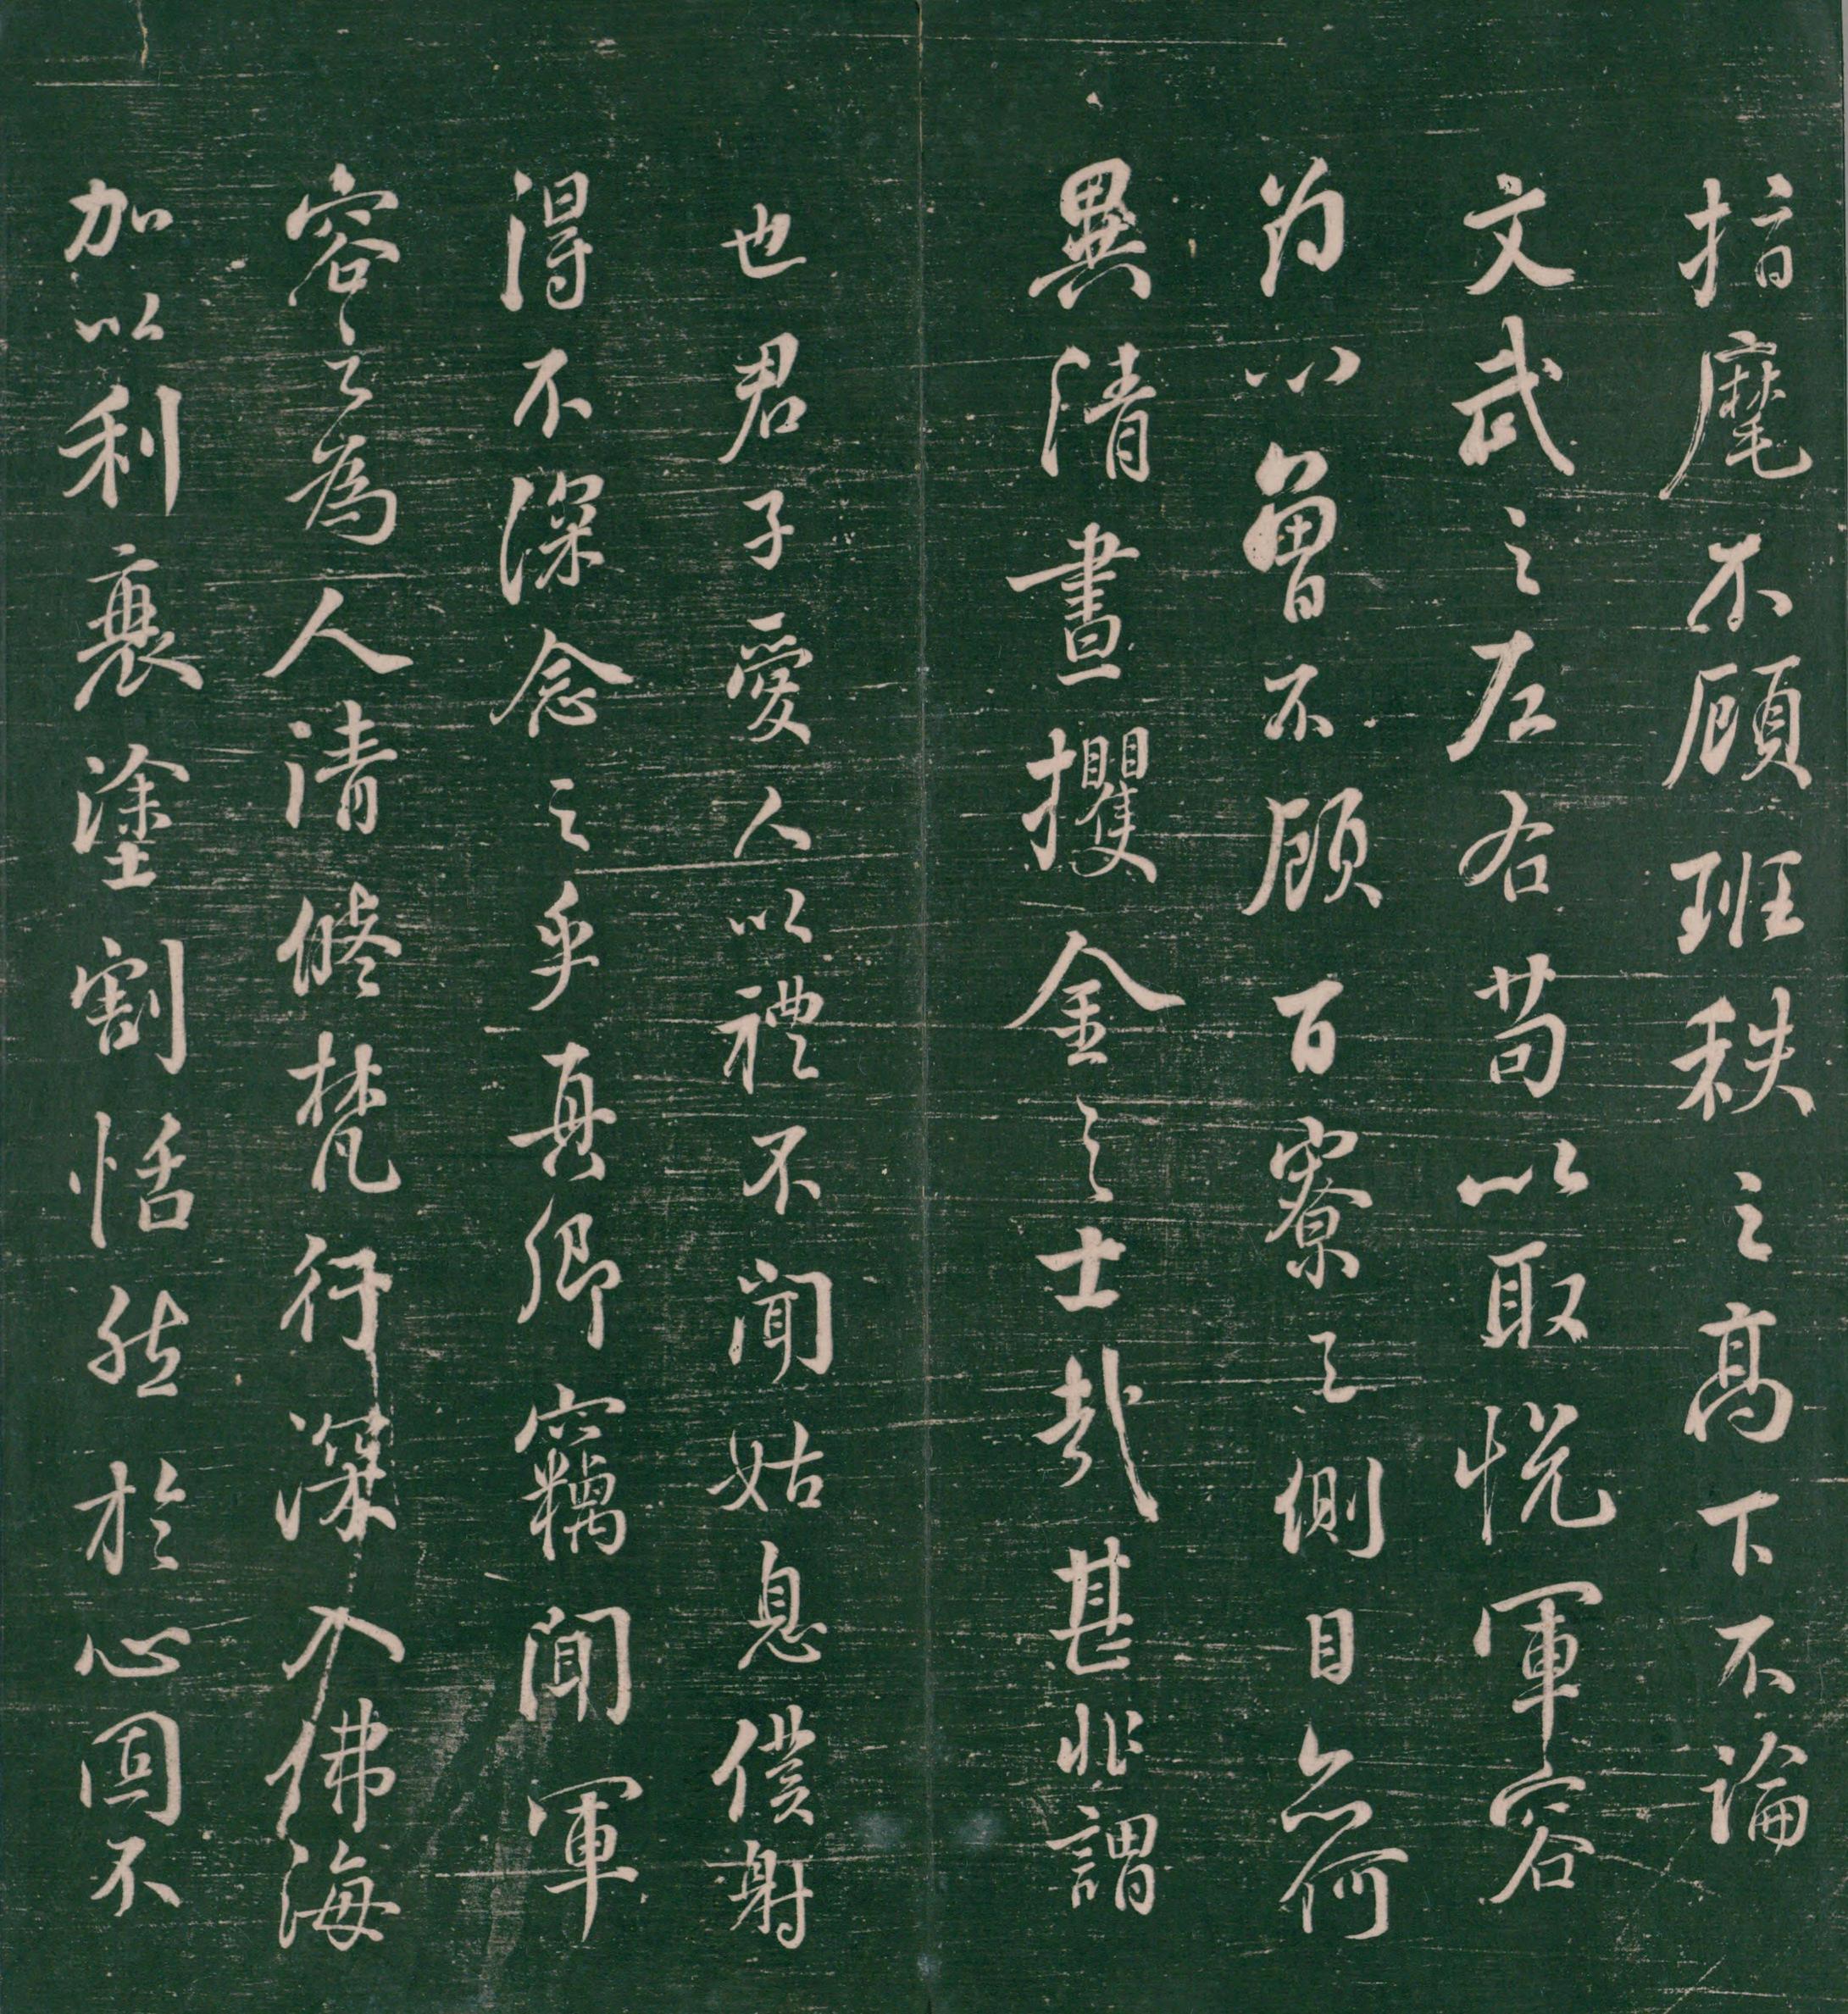 指麾不顧班秩之高下不論
文武之左右苟以取悅軍容
為心曾不顧百寮之側目亦何
異清晝攫金之士哉甚非謂
也君子愛人以禮不聞姑息僕射
得不深念之乎真卿竊聞軍
容之為人清修梵行深入佛海
加以利衰塗割恬然於心固不